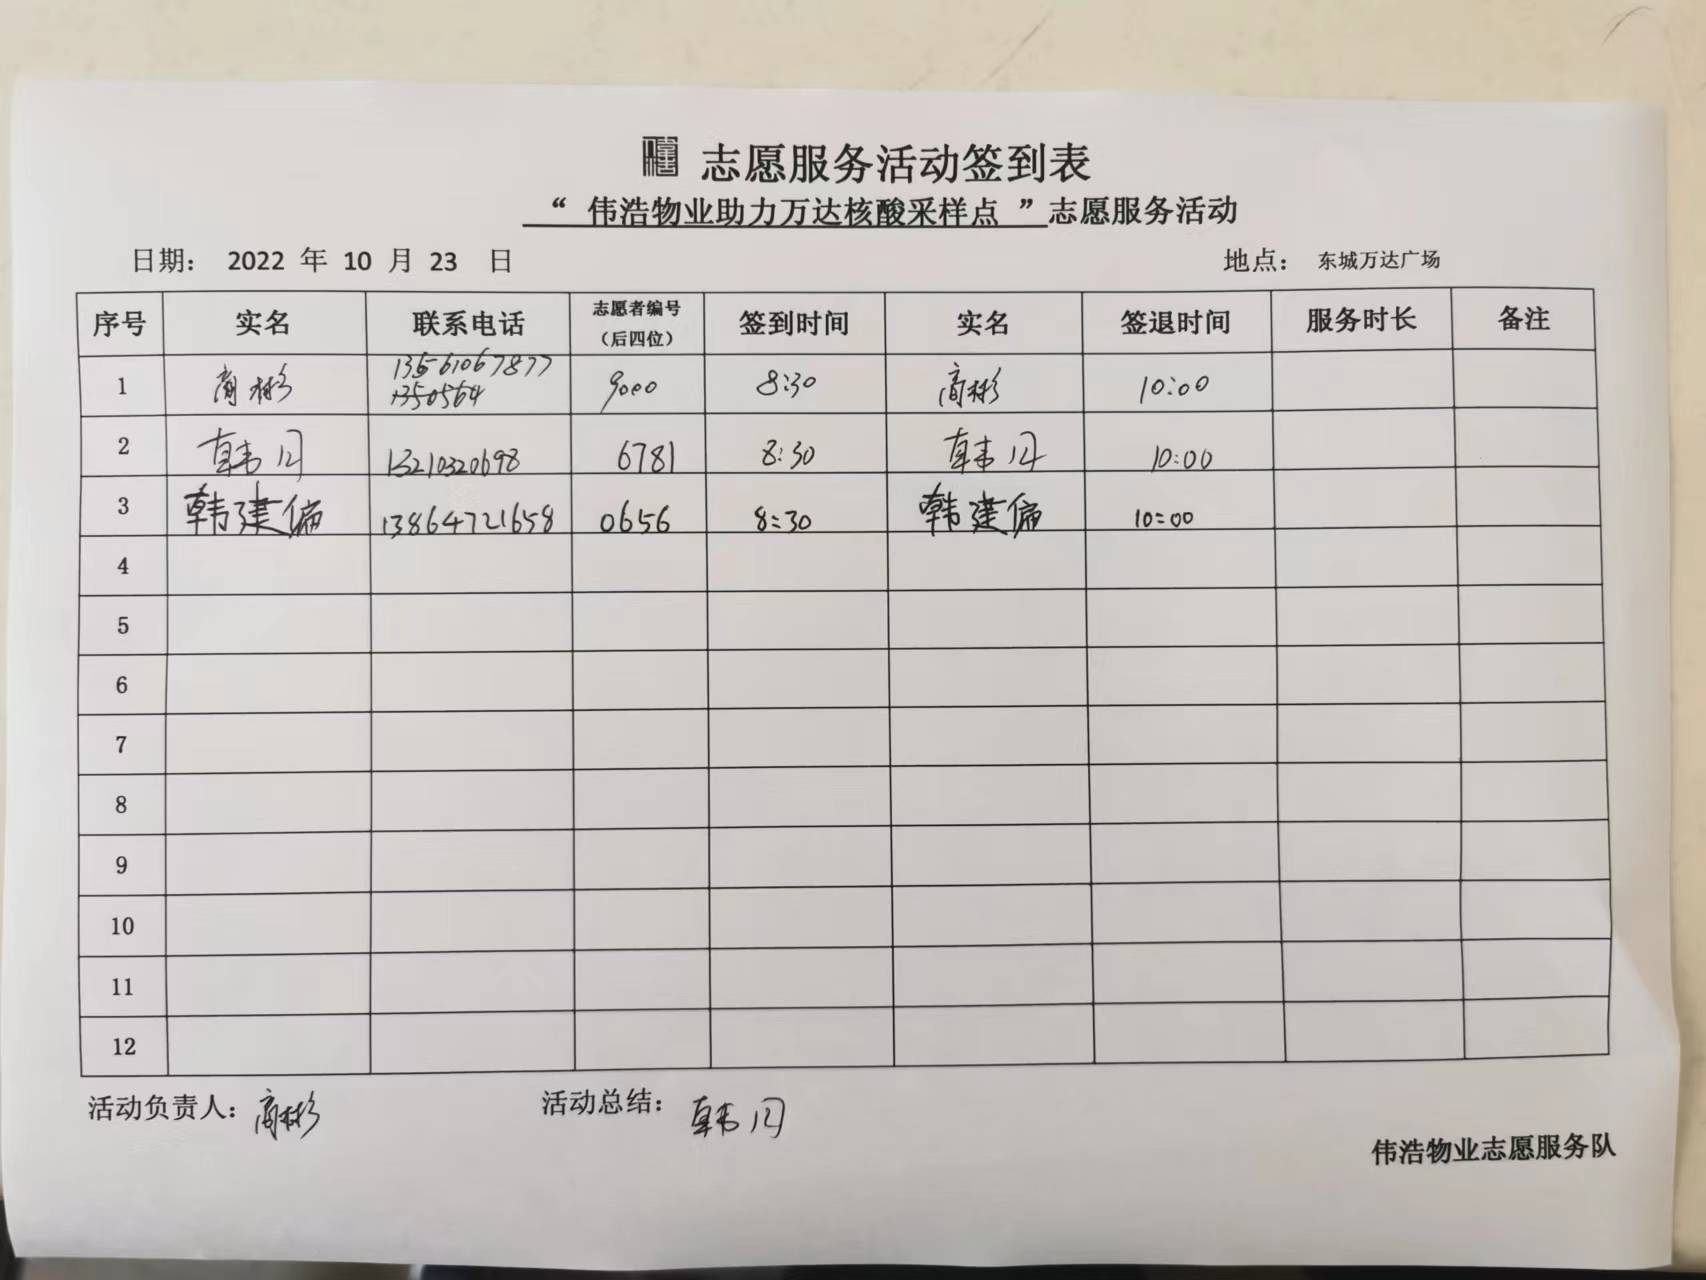 志愿服务活动签到表
“ 伟浩物业助力万达核酸采样点 ”志愿服务活动
日期： 2022 年 10 月 23 日 地点： 东城万达广场
序号 实名 联系电话 志愿者编号（后四位） 签到时间 实名 签退时间 服务时长 备注
1 商彬 13561067877 9000 8:30 商彬 10:00
2 韩 13210320698 6781 8:30 韩 10:00
3 韩建 13864721658 0656 8:30 韩建 10:00
4
5
6
7
8
9
10
11
12
活动负责人：商彬 活动总结：韩
伟浩物业志愿服务队